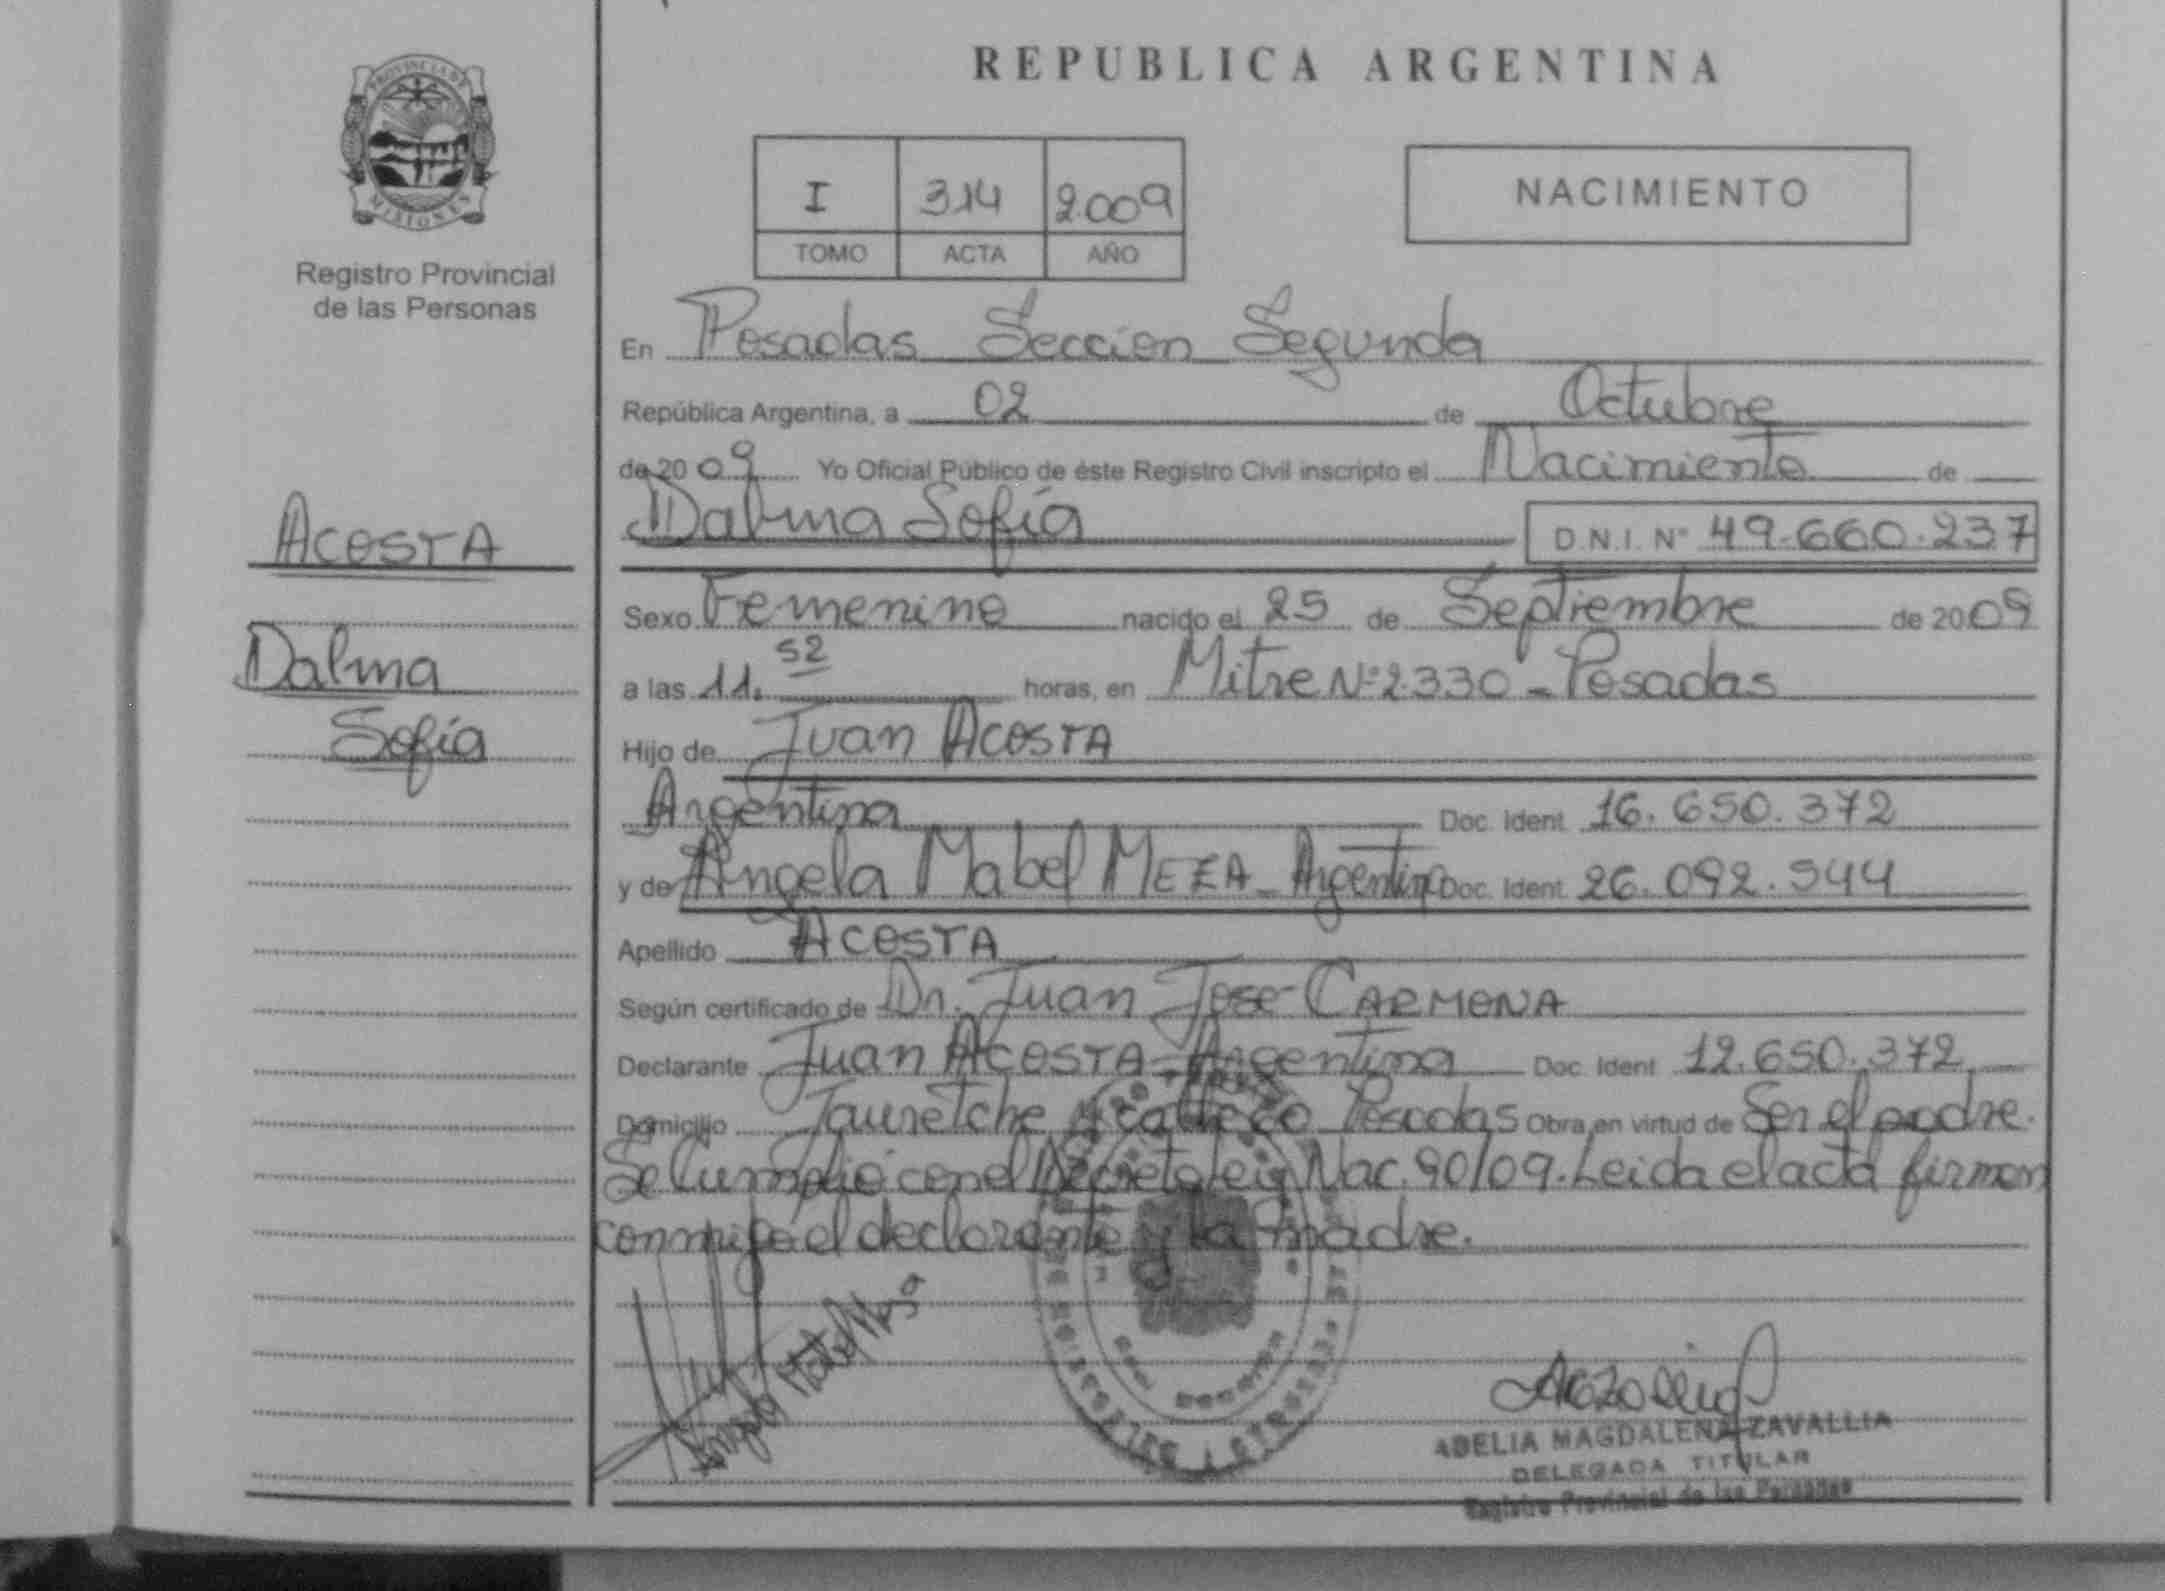 REPUBLICA ARGENTINA
PROVINCIA DE
MISIONES
Registro Provincial
de las Personas
I 314 2.009
TOMO ACTA AÑO
NACIMIENTO
En Posadas Seccion Segunda
República Argentina, a 02 de Octubre
de 2009 Yo Oficial Público de éste Registro Civil inscripto el Nacimiento de
Dalma Sofía D.N.I. Nº 49.660.237
ACOSTA
Dalma
Sofía
Sexo Femenino nacido el 25 de Septiembre de 2009
a las 11.52 horas, en Mitre Nº 2.330 - Posadas
Hijo de Juan ACOSTA
Argentina Doc. Ident. 16.650.372
y de Angela Mabel MEZA - Argentina Doc. Ident. 26.092.544
Apellido ACOSTA
Según certificado de Dr. Juan Jose CARMONA
Declarante Juan ACOSTA - Argentina Doc. Ident. 12.650.372
Domicilio Jauretche Posadas Obra en virtud de Ser el padre.
Se Cumplió con el Decreto Ley Nac. 90/09. Leida el acta firman
conmigo el declarante y la madre.
Angela Mabel Meza
ADELIA MAGDALENA ZAVALLIA
DELEGADA TITULAR
Registro Provincial de las Personas